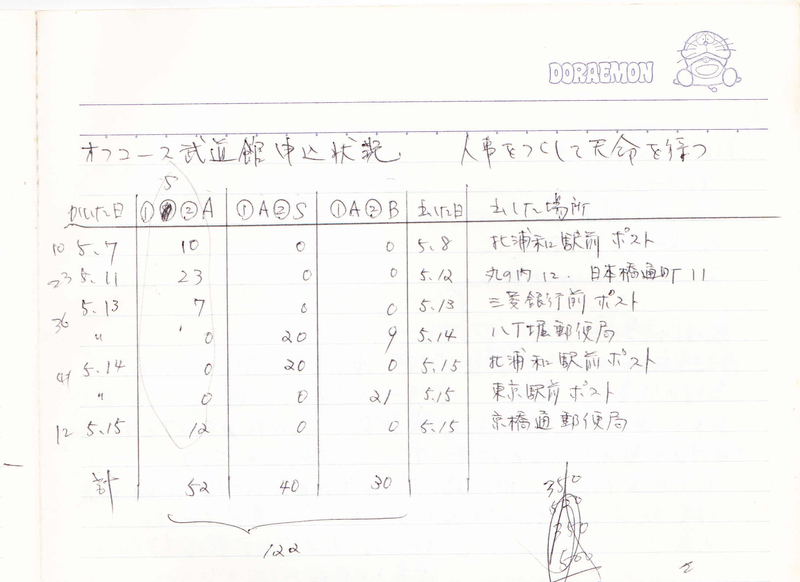 DORAEMON
オフコース武道館申込状況 人事をつくして天命を待つ
S
かいた日 ① ② A ① A ② S ① A ② B 出した日 出した場所
10 5.7 10 0 0 5.8 北浦和駅前ポスト
23 5.11 23 0 0 5.12 丸の内12. 日本橋通町11
36 5.13 7 0 0 5.13 三菱銀行前ポスト
〃 0 20 9 5.14 八丁堀郵便局
41 5.14 0 20 0 5.15 北浦和駅前ポスト
〃 0 0 21 5.15 東京駅前ポスト
12 5.15 12 0 0 5.15 京橋通郵便局
計 52 40 30
122
350
350
500